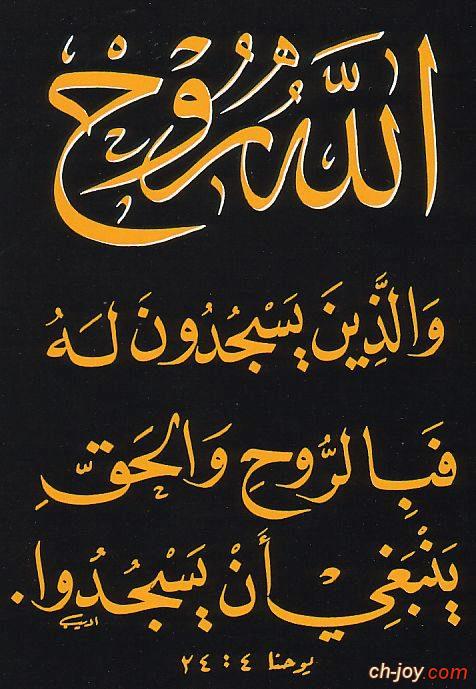 اللَّهُ رُوحٌ
وَالَّذِينَ يَسْجُدُونَ لَهُ
فَبِالرُّوحِ وَالْحَقِّ
يَنْبَغِي أَنْ يَسْجُدُوا.
اديب
يوحنا ٤ : ٢٤
ch-joy.com